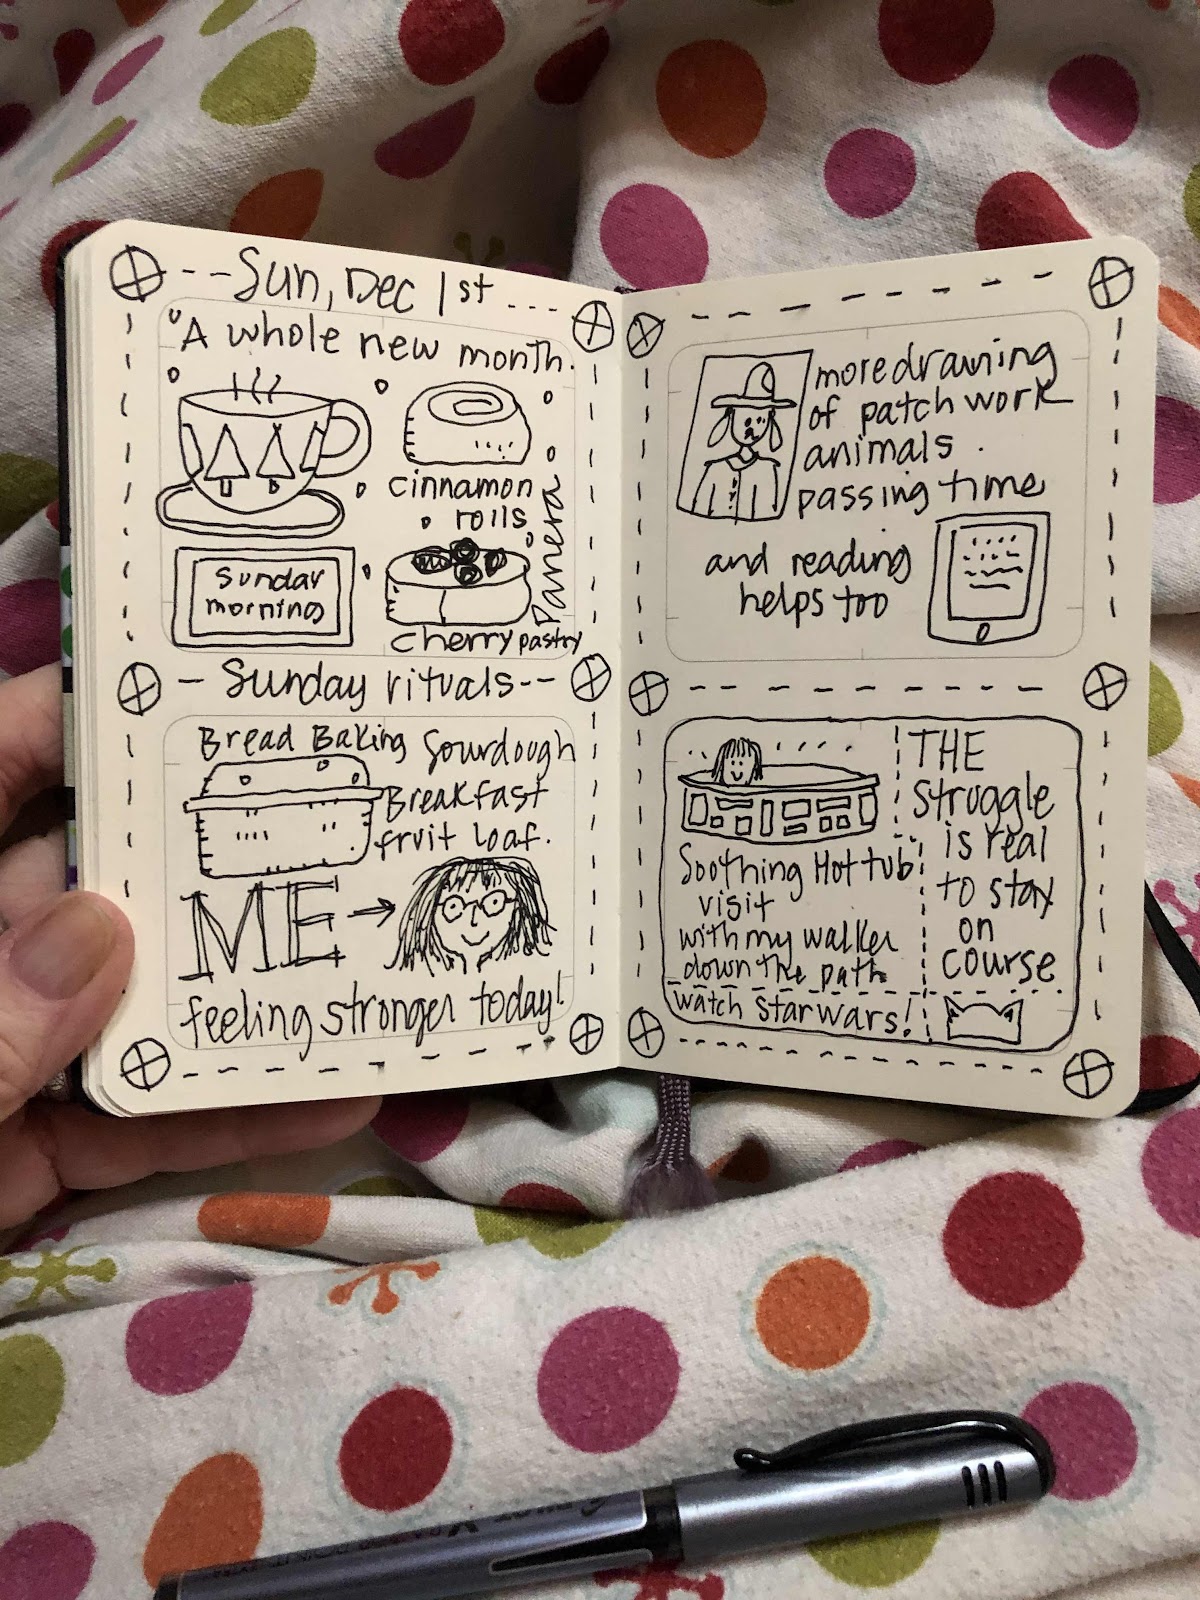 --Sun, Dec 1st...
"A whole new month.
cinnamon
rolls
Panera
Sunday
morning
cherry pastry
- Sunday rituals--
Bread Baking Sourdough
Breakfast
fruit loaf.
ME →
feeling stronger today!
more drawing
of patchwork
animals.
passing time
and reading
helps too
Soothing Hot tub
visit
with my walker
down the path
THE
struggle
is real
to stay
on
course
watch Starwars!
PILOT